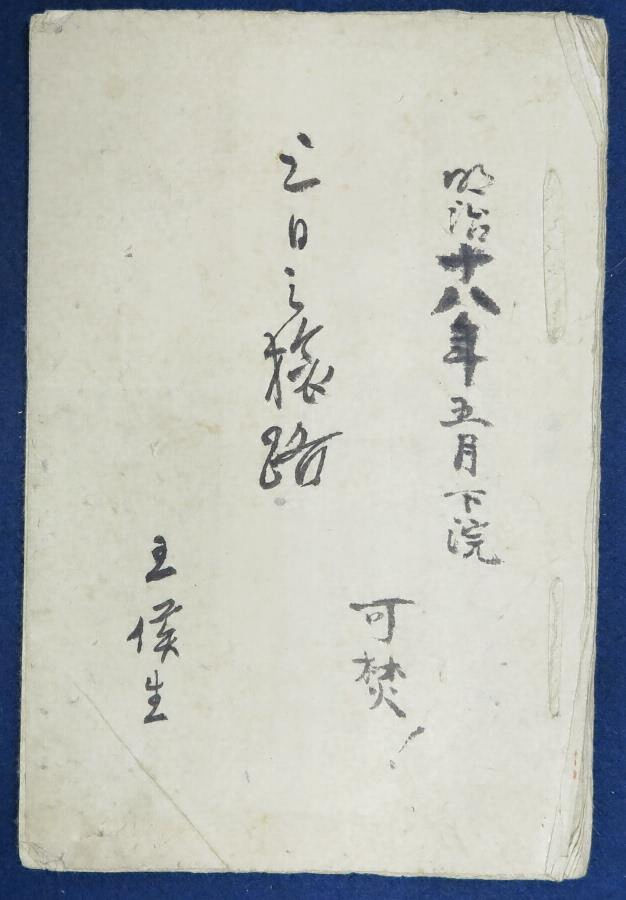 明治十八年五月下浣
可焚!
三日之旅路
王侯生